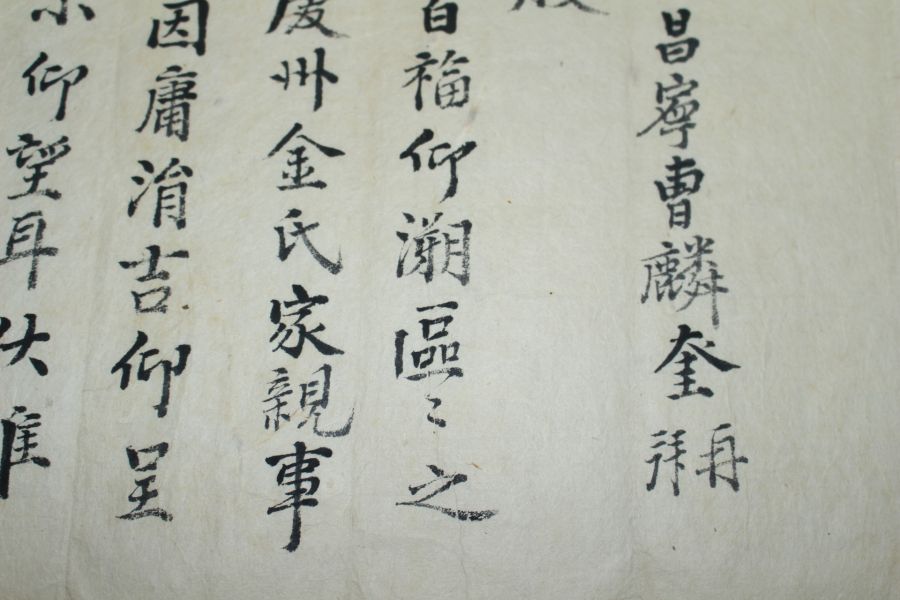 昌寧曹麟奎再拜
百福仰溯區〻之
慶州金氏家親事
因庸涓吉仰呈
仰望耳伏惟